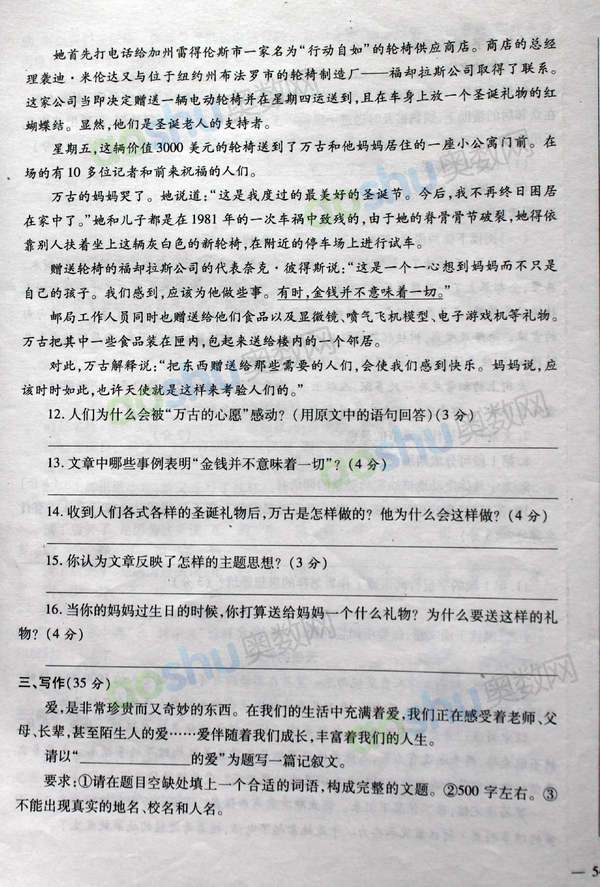 她首先打电话给加州雷得伦斯市一家名为“行动自如”的轮椅供应商店。商店的总经
理裘迪·米伦达又与位于纽约州布法罗市的轮椅制造厂——福却拉斯公司取得了联系。
这家公司当即决定赠送一辆电动轮椅并在星期四运送到，且在车身上放一个圣诞礼物的红
蝴蝶结。显然，他们是圣诞老人的支持者。
星期五，这辆价值 3000 美元的轮椅送到了万古和他妈妈居住的一座小公寓门前。在
场的有 10 多位记者和前来祝福的人们。
万古的妈妈哭了。她说道：“这是我度过的最美好的圣诞节。今后，我不再终日困居
在家中了。”她和儿子都是在 1981 年的一次车祸中致残的，由于她的脊骨骨节破裂，她得依
靠别人扶着坐上这辆灰白色的新轮椅，在附近的停车场上进行试车。
赠送轮椅的福却拉斯公司的代表奈克·彼得斯说：“这是一个一心想到妈妈而不只是
自己的孩子。我们感到，应该为他做些事。有时，金钱并不意味着一切。”
邮局工作人员同时也赠送给他们食品以及显微镜、喷气飞机模型、电子游戏机等礼物。
万古把其中一些食品装在匣内，包起来送给楼内的一个邻居。
对此，万古解释说：“把东西赠送给那些需要的人们，会使我们感到快乐。妈妈说，应
该时时如此，也许天使就是这样来考验人们的。”
12. 人们为什么会被“万古的心愿”感动？（用原文中的语句回答）（3 分）
13. 文章中哪些事例表明“金钱并不意味着一切”？（4 分）
14. 收到人们各式各样的圣诞礼物后，万古是怎样做的？他为什么会这样做？（4 分）
15. 你认为文章反映了怎样的主题思想？（3 分）
16. 当你的妈妈过生日的时候，你打算送给妈妈一个什么礼物？为什么要送这样的礼
物？（4 分）
三、写作（35 分）
爱，是非常珍贵而又奇妙的东西。在我们的生活中充满着爱，我们正在感受着老师、父
母、长辈，甚至陌生人的爱……爱伴随着我们成长，丰富着我们的人生。
请以“__________的爱”为题写一篇记叙文。
要求：①请在题目空缺处填上一个合适的词语，构成完整的文题。②500 字左右。③
不能出现真实的地名、校名和人名。
aoshu奥数网
aoshu奥数网
aoshu奥数网
aoshu奥数网